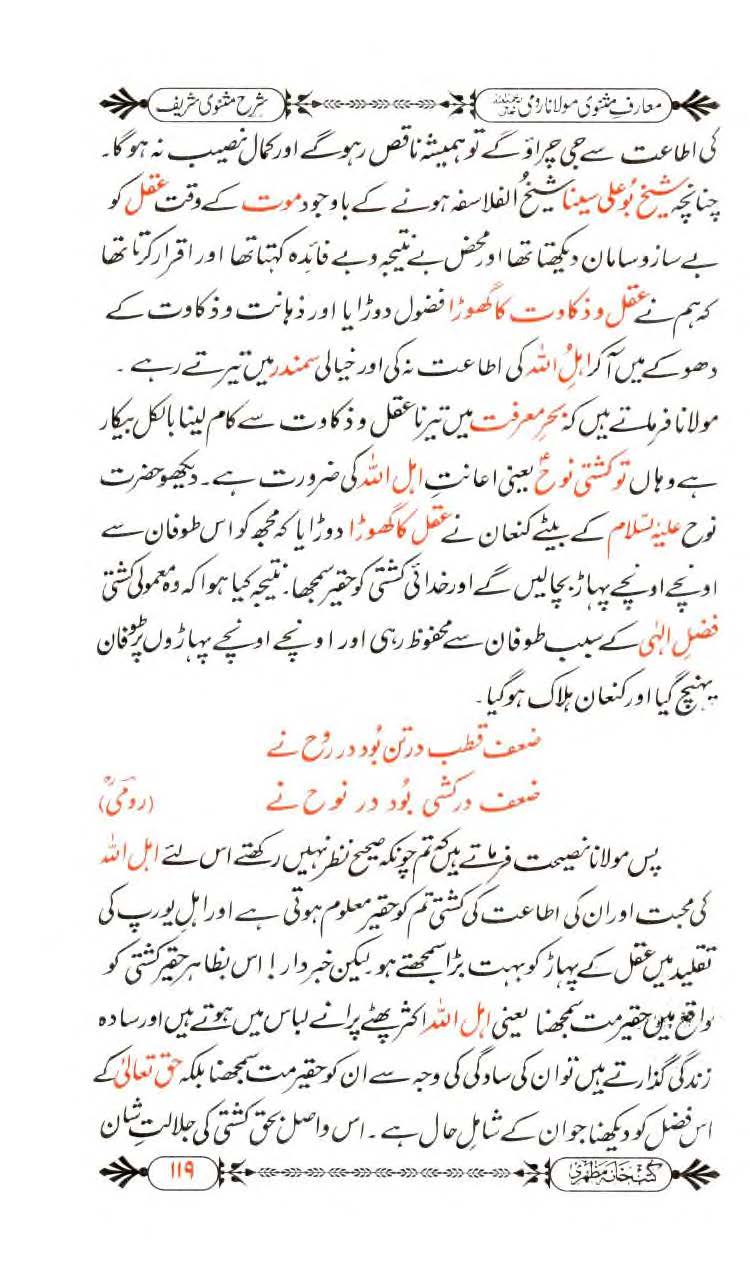 معارفِ مثنوی مولانا رومیؒ شرح مثنوی شریف
کی اطاعت سے جی چراؤ گے تو ہمیشہ ناقص رہوگے اور کمال نصیب نہ ہوگا۔
چنانچہ شیخ بُوعلی سینا شیخُ الفلاسفہ ہونے کے باوجود موت کے وقت عقل کو
بے سازوسامان دیکھتا تھا اور محض بے نتیجہ و بے فائدہ کہتا تھا اور اقرار کرتا تھا
کہ ہم نے عقل و ذکاوت کا گھوڑا فضول دوڑایا اور ذہانت و ذکاوت کے
دھوکے میں آکر اہلُ اللہ کی اطاعت نہ کی اور خیالی سمندر میں تیرتے رہے۔
مولانا فرماتے ہیں کہ بحرِ معرفت میں تیرنا عقل و ذکاوت سے کام لینا بالکل بیکار
ہے وہاں تو کشتیٔ نوحؑ یعنی اعانتِ اہل اللہ کی ضرورت ہے۔ دیکھو حضرت
نوح علیہ السّلام کے بیٹے کنعان نے عقل کا گھوڑا دوڑایا کہ مجھ کو اس طوفان سے
اونچے اونچے پہاڑ بچالیں گے اور خدائی کشتی کو حقیر سمجھا۔ نتیجہ کیا ہوا کہ وہ معمولی کشتی
فضلِ الٰہی کے سبب طوفان سے محفوظ رہی اور اونچے اونچے پہاڑوں پر طوفان
پہنچ گیا اور کنعان ہلاک ہوگیا۔
ضعف قطب در تن بُود در روح نے
ضعف در کشتی بُود در نوح نے (رومیؒ)
پس مولانا نصیحت فرماتے ہیں کہ تم چونکہ صحیح نظر نہیں رکھتے اس لئے اہل اللہ
کی محبت اور ان کی اطاعت کی کشتی تم کو حقیر معلوم ہوتی ہے اور اہلِ یورپ کی
تقلید میں عقل کے پہاڑ کو بہت بڑا سمجھتے ہو لیکن خبردار! اس بظاہر حقیر کشتی کو
واقع میں حقیر مت سمجھنا یعنی اہل اللہ اکثر پھٹے پرانے لباس میں ہوتے ہیں اور سادہ
زندگی گذارتے ہیں تو ان کی سادگی کی وجہ سے ان کو حقیر مت سمجھنا بلکہ حق تعالیٰ کے
اس فضل کو دیکھنا جو ان کے شاملِ حال ہے۔ اس واصل بحق کشتی کی جلالتِ شان
کتب خانہ مظہری ۱۱۹